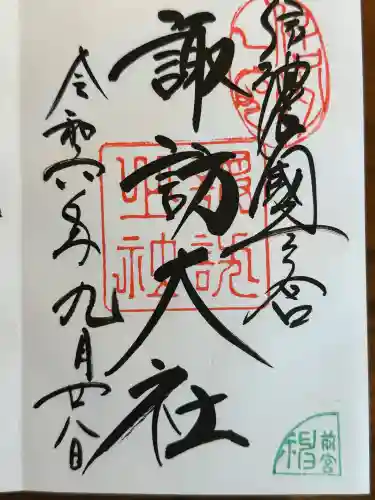 信濃國一之宮
諏訪大社
令和六年九月廿八日
前宮